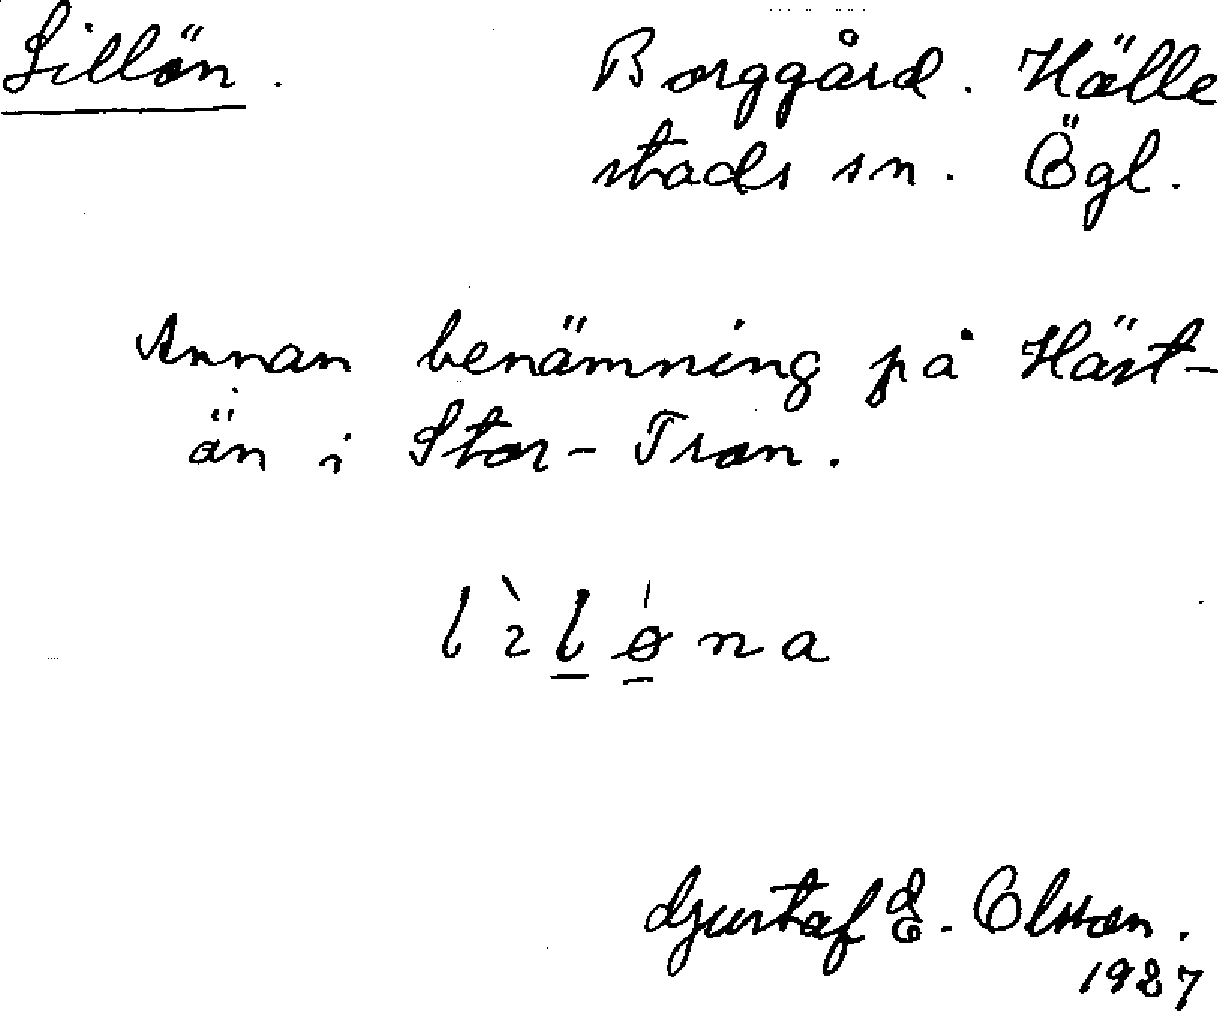 Lillön.
Borggård. Hälle
stads sn. Ögl.
Annan benämning på Häst-
ön i Stor-Tron.
lìlǿna
Gustaf E. Olsson.
1927